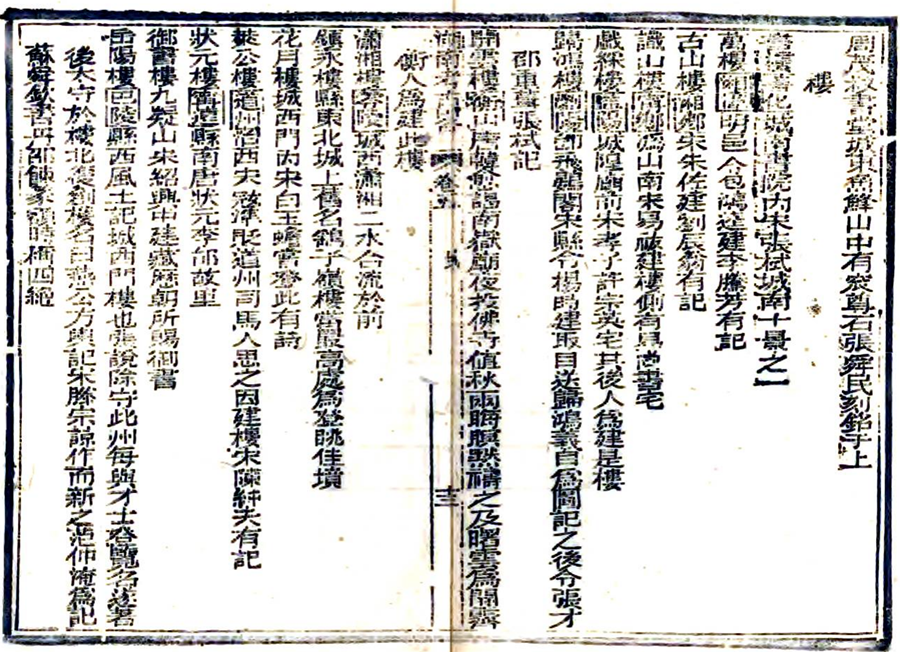 周茂叔書堂城東魚鮮山中有窊尊石張舜民刻銘于上
樓
化城南書院內宋張栻城南十景之一
萬樓湘潭明邑令包鴻逵建李騰芳有記
古山樓湘鄉宋朱佐建劉辰翁有記
識山樓甯鄉溈山南宋易祓建樓側有易尚書宅
戲綵樓瀏陽城隍廟前宋孝子許宗英宅其後人爲建是樓
歸鴻樓瀏陽即飛鷃閣宋縣令楊時建取目送歸鴻義自爲圖記之後令張才
邵重葺張栻記
開雲樓衡山唐韓愈謁南嶽廟夜投佛寺值秋雨晦暝默禱之及曙雲爲開霽
衡人爲建此樓
湖南考古略
卷五
樓
十三
瀟湘樓零陵城西瀟湘二水合流於前
鎭永樓縣東北城上舊名鶴子嶺樓當最高處爲登眺佳境
花月樓城西門內宋白玉蟾嘗登此有詩
萊公樓道州治西宋寇準貶道州司馬人思之因建樓宋陳紳夫有記
狀元樓甯遠縣南唐狀元李郃故里
御書樓九疑山宋紹興中建藏歷朝所賜御書
岳陽樓巴陵縣西風土記城西門樓也張說除守此州每與才士登覽名遂著
後太守於樓北復創樓名曰燕公方輿記宋滕宗諒作而新之范仲淹爲記
蘇舜欽書丹邵餗篆額時稱四絕